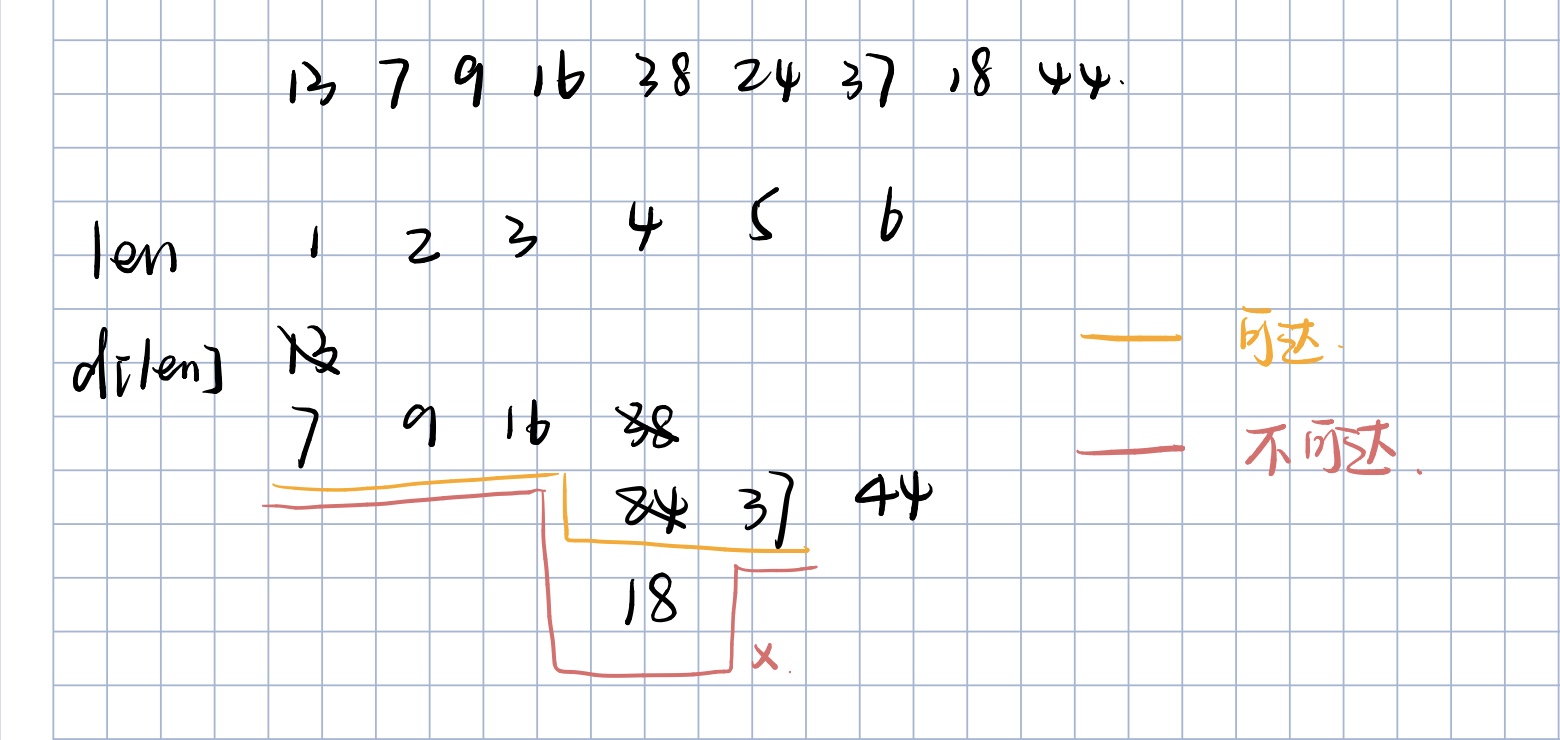 13 7 9 16 38 24 37 18 44.
len 1 2 3 4 5 6
d[len] 13
可达.
7 9 16 38
不可达.
24 37 44
18
x.